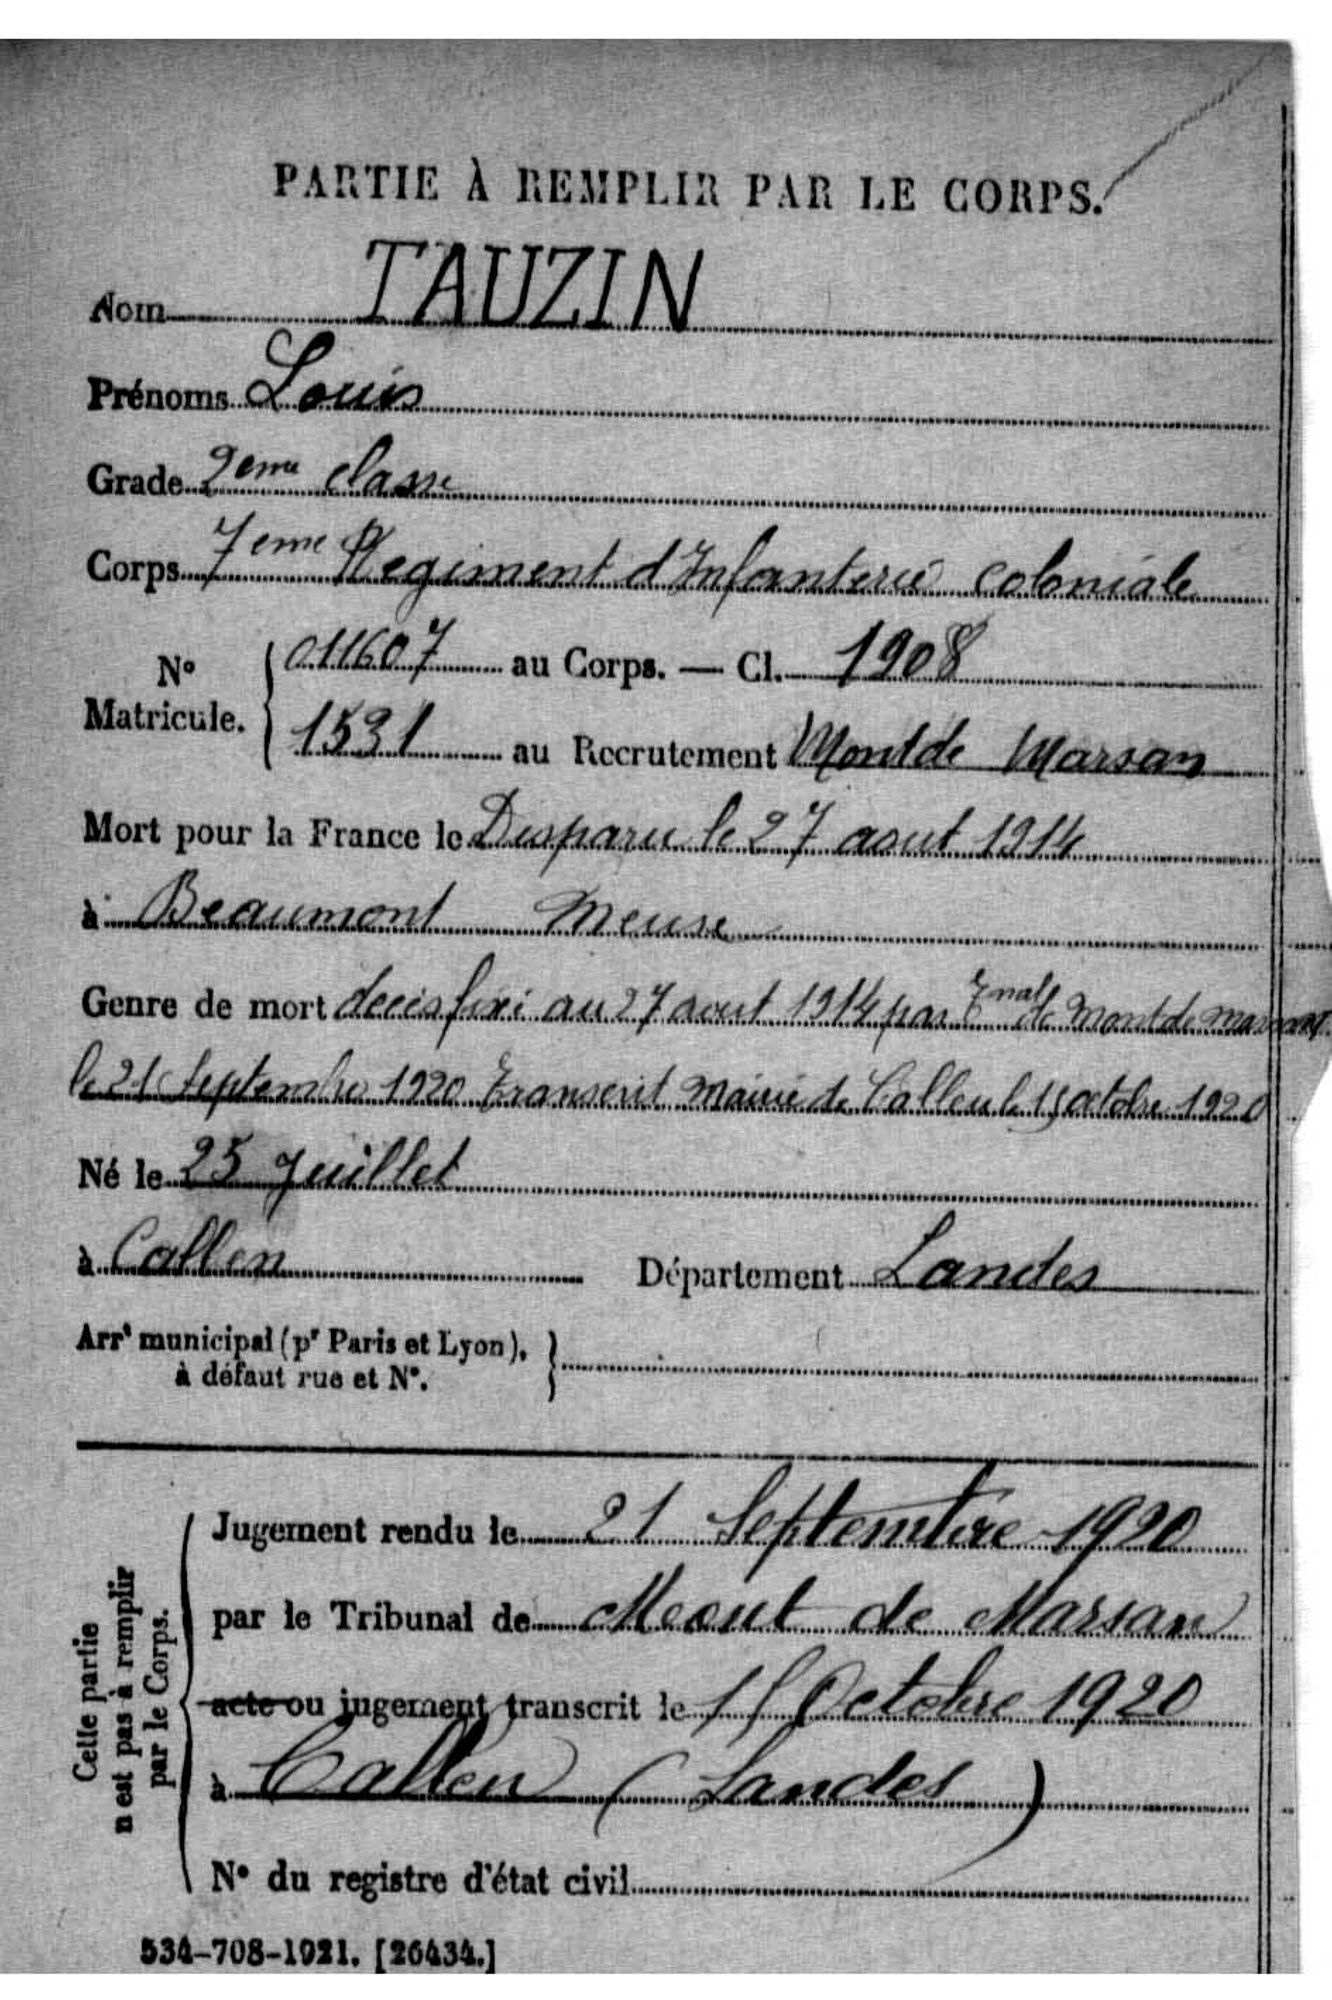 PARTIE À REMPLIR PAR LE CORPS.
Nom TAUZIN
Prénoms Louis
Grade 2eme classe
Corps 7eme Regiment d'Infanterie coloniale
N° Matricule. { 011607 au Corps. — Cl. 1908
1531 au Recrutement Mont de Marsan
Mort pour la France le Disparu le 27 aout 1914
à Beaumont Meuse
Genre de mort deces fixé au 27 aout 1914 par Tnal de Mont de Marsan
le 21 Septembre 1920 Transcrit Mairie de Callen le 15 octobre 1920
Né le 25 Juillet
à Callen Département Landes
Arrt municipal (pr Paris et Lyon), à défaut rue et N°. }
Cette partie n'est pas à remplir par le Corps.
Jugement rendu le 21 Septembre 1920
par le Tribunal de Mont de Marsan
acte ou jugement transcrit le 15 Octobre 1920
à Callen (Landes)
N° du registre d'état civil
534-708-1921. [26434.]